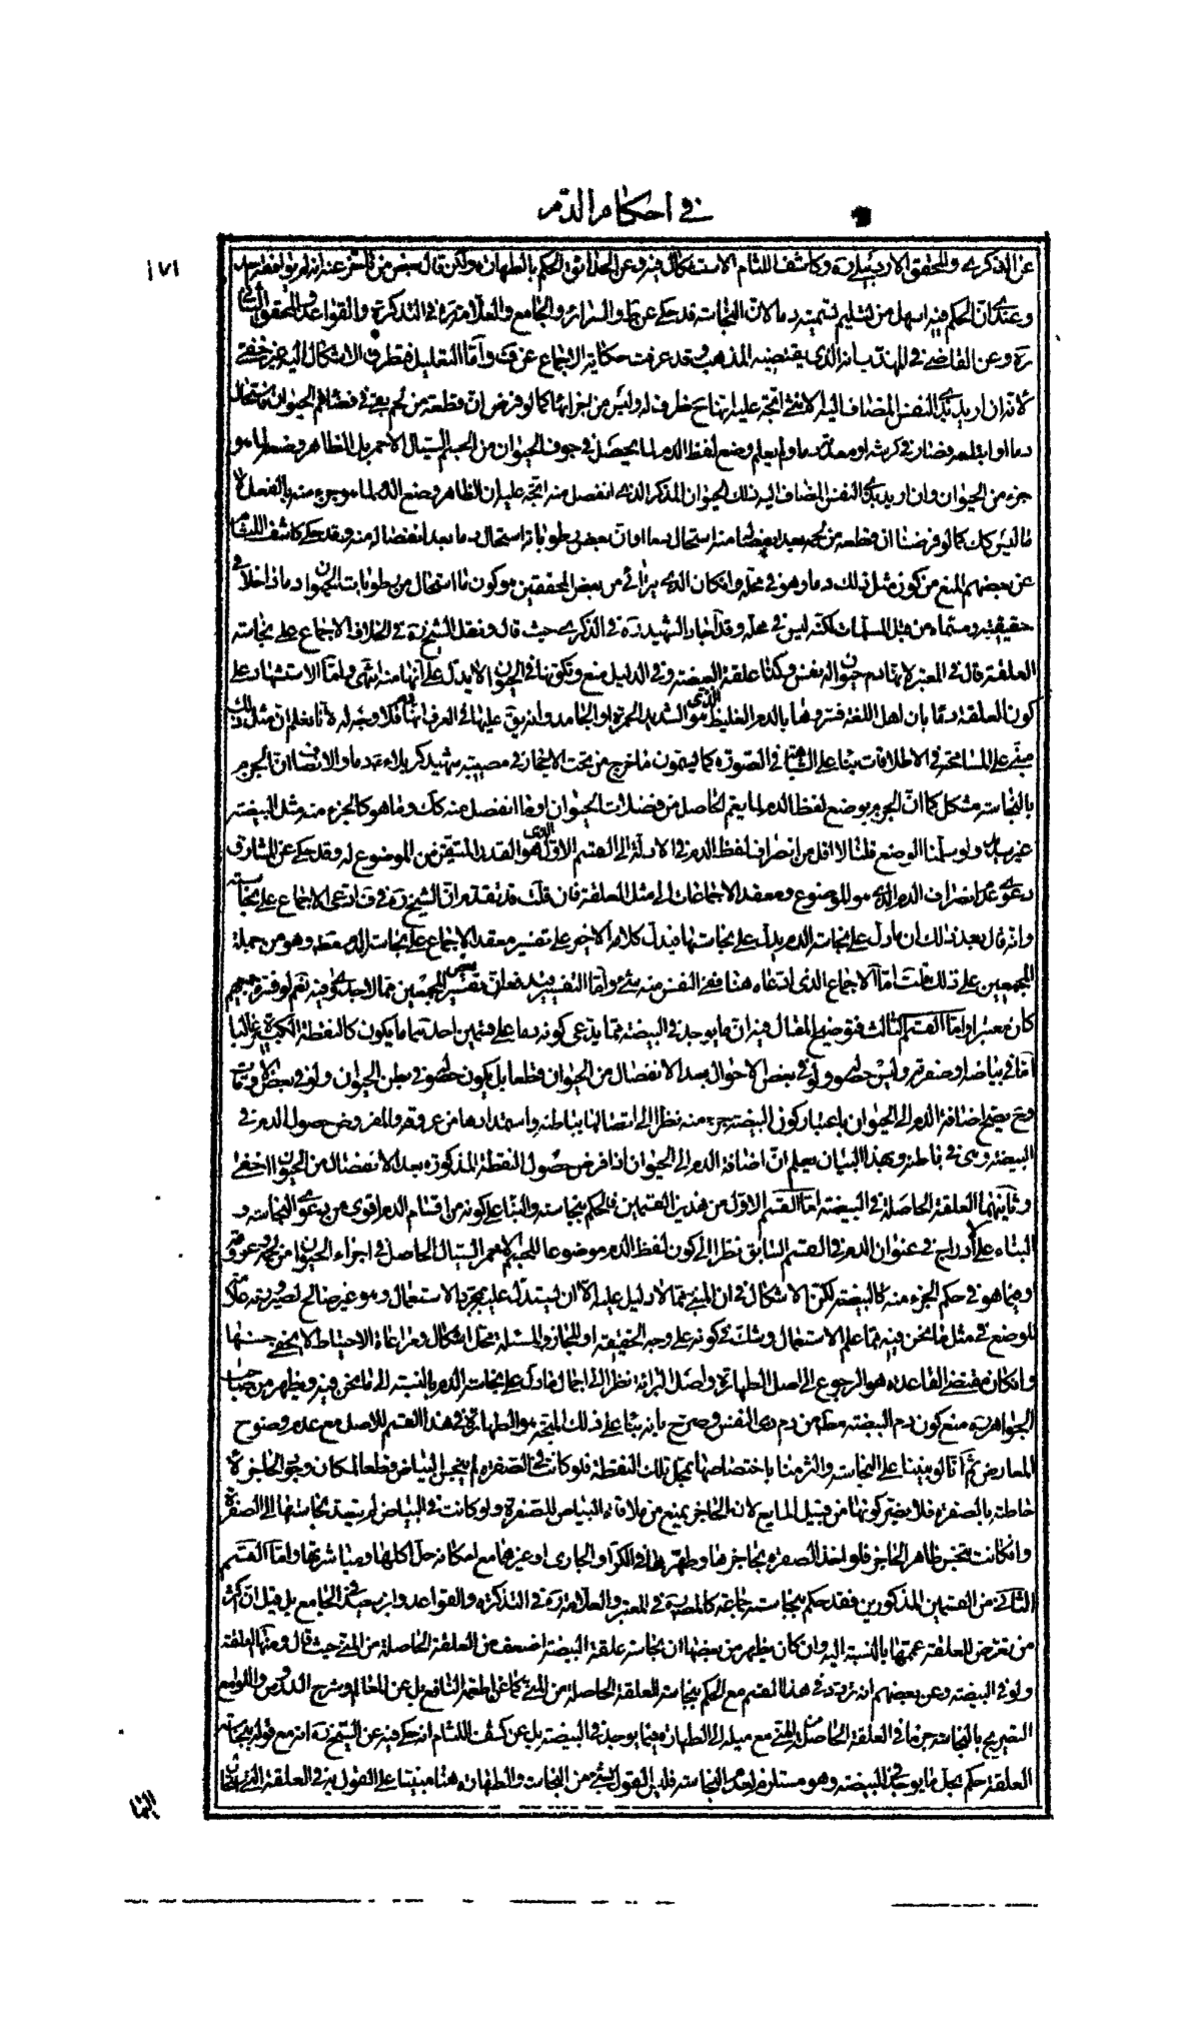 في احكام الدّم
١٧١
عن الذكرى والمحقق الاردبيلي ره وكاشف اللثام الاستشكال فيه وعن الحدائق الحكم بالطهارة ولكن قال بعض من تاخر عنه انه لم يوافقه احد
وعندي ان الحكم فيه اسهل من تسليم تسميته دما لان النجاسة قد حكى عن ط والسرائر والجامع والعلامة ره في التذكرة والقواعد والمحقق الثاني
ره وعن القاضي في المهذب انه الذي يقتضيه المذهب وقد عرفت حكاية الاجماع عن ف وامّا التعليل فتطرق الاشكال اليه غير خفي
لانه ان اريد بذي النفس المضاف اليه الانثى اتجه عليه انها ح ظرف له وليس من اجزائها كما لو فرض ان قطعة من لحم بقي في فضاء فم الحيوان فاستحال
دما او ابتلعه فصار في كرشه او معدته دما ولم يعلم وضع لفظ الدم لما يحصل في جوف الحيوان من الجسم السيال الاحمر بل الظاهر وضعه لما هو
جزء من الحيوان وان اريد بذي النفس المضاف اليه ذلك الحيوان المذكر الذي انفصل منه اتجه عليه ان الظاهر وضع الدم لما هو جزء منه بالفعل لا
ما ليس كك كما لو فرضنا ان قطعة من لحمه بعد انفصالها منه استحال دما او ان بعض رطوباته استحال دما بعد انفصاله منه وقد حكى كاشف اللثام
عن بعضهم المنع من كون مثل ذلك دما وهو في محله وان كان الذي يرائى من بعض المحققين هو كون ما استحال من رطوبات الحيوان دما داخلا في
حقيقته ومسمّاه من قبل المسلمات لكنه ليس في محله وقد اجاد الشهيد ره في الذكرى حيث قال ونقل الشيخ ره في الخلاف الاجماع على نجاسة
العلقة قال في المعتبر لانها دم حيوان له نفس وكذا علقة البيضة وفي الدليل منع وتكونها في الحيوان لا يدل على انها منه انتهى وامّا الاستشهاد على
كون العلقة دمًا بان اهل اللغة فسّروها بالدم الغليظ الذي هو الشديد الحمرة او الجامد ولم يق عليها في العرف انها دم فلا وجه له لانا نعلم ان مثل ذلك
مبني على المسامحة في الاطلاقات بناء على المشابهة في الصورة كما يسمون ما خرج من تحت الاحجار في مصيبة شهيد كربلاء ع دما والانصاف ان الجزم
بالنجاسة مشكل كما ان الجزم بوضع لفظ الدم لما يعم الحاصل من فضلات الحيوان او ما انفصل منه كك وما هو كالجزء منه مثل البيضة
غير سائغ ولو سلمنا الوضع قلنا لا اقل من انصراف لفظ الدم في الادلة الى القسم الاول الذي هو القدر المتيقن من الموضوع له وقد حكى عن المشارق
دعوى عدم انصراف الدم الذي هو الموضوع ومعقد الاجماعات الى مثل العلقة فان قلت قد تقدم ان الشيخ ره في ف ادعى الاجماع على نجاسته
وانه قال بعد ذلك ان ما دل على نجاسة الدم يدل على نجاستها فيدل كلامه الاخير على تفسير معقد الاجماع على نجاسة الدم معه وهو من جملة
المجمعين على ذلك قلت امّا الاجماع الذي ادعاه هنا ففي النفس منه شيء وامّا التفسير فيه فلان تفسير بعض المجمعين مما لا جدوى فيه نعم لو فسره جميعهم
كان معتبرا وامّا القسم الثالث فتوضيح المقال فيه ان ما يوجد في البيضة مما يدعى كونه دما على قسمين احدهما ما يكون كالنقطة الكبيرة غالبا
امّا في بياضها او صفرته وليس حصوله ولو في بعض الاحوال بعد الانفصال من الحيوان قطعا بل يكون حصوله في بطن الحيوان ولو في بعض الاوقات
وح يصح اضافة الدم الى الحيوان باعتبار كون البيضة جزء منه نظرا الى اتصالها بباطنه واستمدادها من عروقه والمفروض حصول الدم في
البيضة وهي في باطنه وبهذا البيان يعلم ان اضافة الدم الى الحيوان اذا فرض حصول النقطة المذكورة بعد الانفصال من الحيوان اخفى
وثانيهما العلقة الحاصلة في البيضة امّا القسم الاول من هذين القسمين فالحكم بنجاسته والبناء على كونه من اقسام الدم اقوى من دعوى النجاسة و
البناء على ادراج في عنوان الدم في القسم السابق نظرا الى كون لفظ الدم موضوعا للجسم الاحمر السيال الحاصل في اجزاء الحيوان من لحمه وعروقه
وفيما هو في حكم الجزء منه كالبيضة لكن الاشكال في ان المبنى مما لا دليل عليه الا ان يستدل عليه بمجرد الاستعمال وهو غير صالح لصيرورته علامة
للوضع في مثل ما نحن فيه مما علم الاستعمال وشك في كونه على وجه الحقيقة او المجاز والمسئلة محل اشكال ومراعاة الاحتياط لا يخفى حسنها
وان كان مقتضى القاعدة هو الرجوع الى اصل الطهارة واصل البراءة نظرا الى اجمال ما دل على نجاسة الدم بالنسبة الى ما نحن فيه ويظهر من صاحب
الجواهر ره منع كون دم البيضة معلم من دم ذي النفس وصرح بانه بناء على ذلك المتجه هو الطهارة في هذا القسم للاصل مع عدم وضوح
المعارض ثم انا لو بنينا على النجاسة والتزمنا باختصاصها بمحل تلك النقطة فلو كانت في الصفرة لم ينجس البياض قطعا لمكان وجود الحاجز لا
حاطته بالصفرة فلا يضر كونها من قبيل المايع لانه الحاجز يمنع من ملاقاة البياض للصفرة ولو كانت في البياض لم يتعد نجاستها الى الصفرة
وان كانت ينجس ظاهر الحاجز فلو اخذ الصفرة بحاجزها وطهر ظاهرها في الكر او الجاري او غيرهما مع امكانه حل اكلها ومباشرتها وامّا القسم
الثاني من القسمين المذكورين فقد حكم بنجاسته جماعة كالمصنف ره في المعتبر والعلامة ره في التذكرة والقواعد وابن سعيد في الجامع بل قيل ان اكثر
من تعرض للعلقة عممها بالنسبة اليه وان كان يظهر من بعضها ان نجاسة علقة البيضة اضعف من العلقة الحاصلة من المني حيث قال ومنها العلقة
ولو في البيضة وعن بعضهم انه تردد في هذا القسم مع الحكم بنجاسة العلقة الحاصلة من المني كما عن اطعمة النافع بل عن المعالم وشرح الدروس واللوامع
التصريح بالنجاسة جزما في العلقة الحاصلة من المني مع ميله الى الطهارة فيما يوجد في البيضة بل عن كشف اللثام انه حكى فيه عن الشيخ ره انه مع قوله بنجاسة
العلقة حكم بحل ما يوجد في البيضة وهو مستلزم لعدم النجاسة فليس القول بشيء من النجاسة والطهارة هنا مبنيا على القول به في العلقة التي